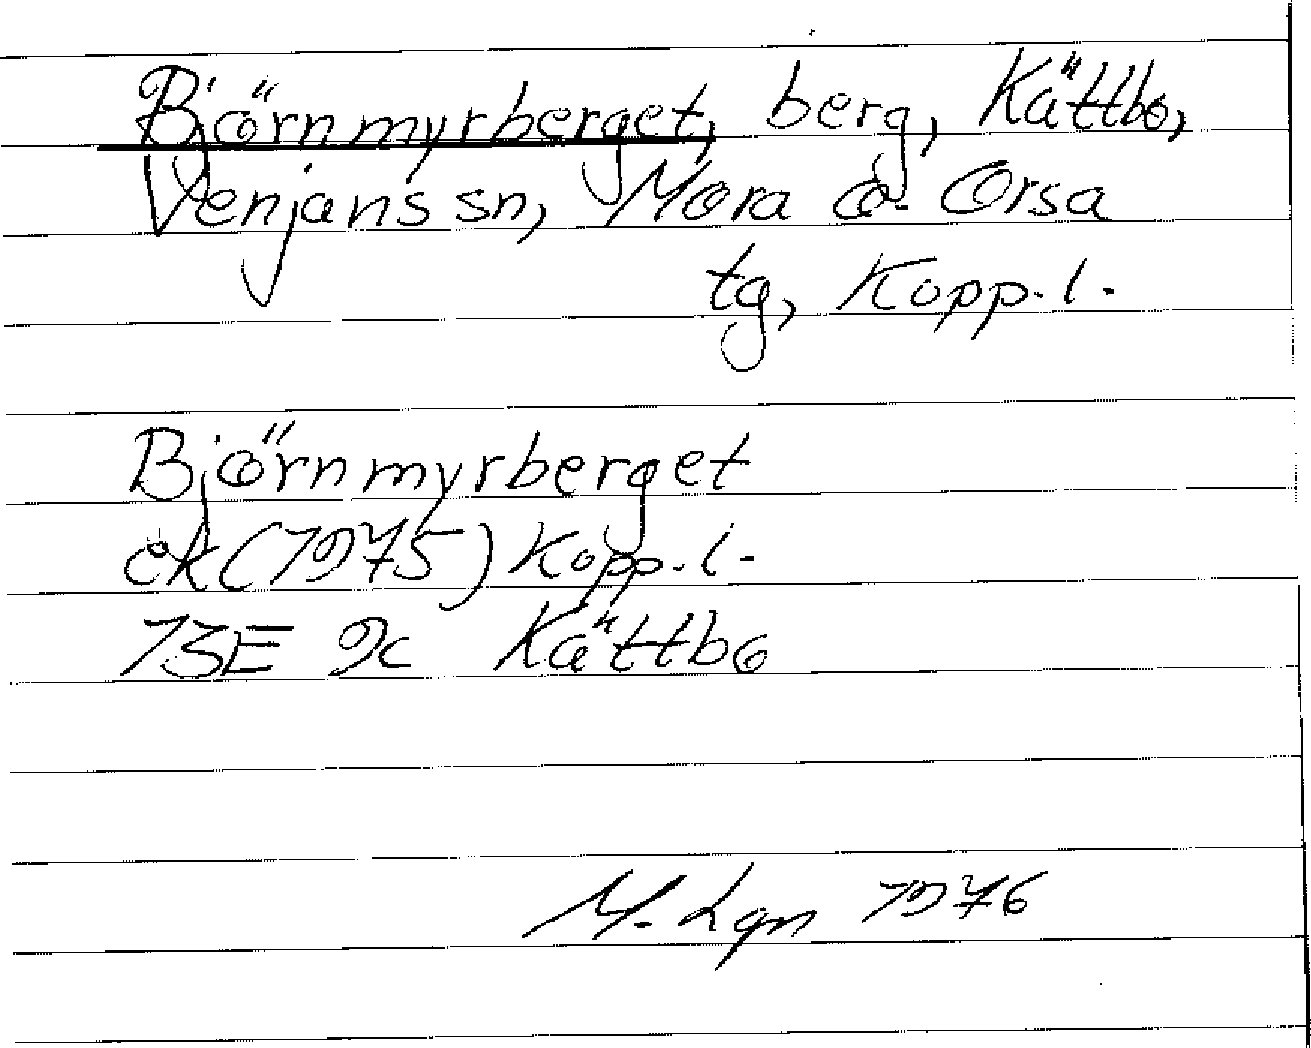 Björnmyrberget, berg, Kättbo,
Venjans sn, Mora o. Orsa
tg, Kopp. l.
Björnmyrberget
ek (1975) Kopp. l.
13E 9c Kättbo
M. Lgn 1976